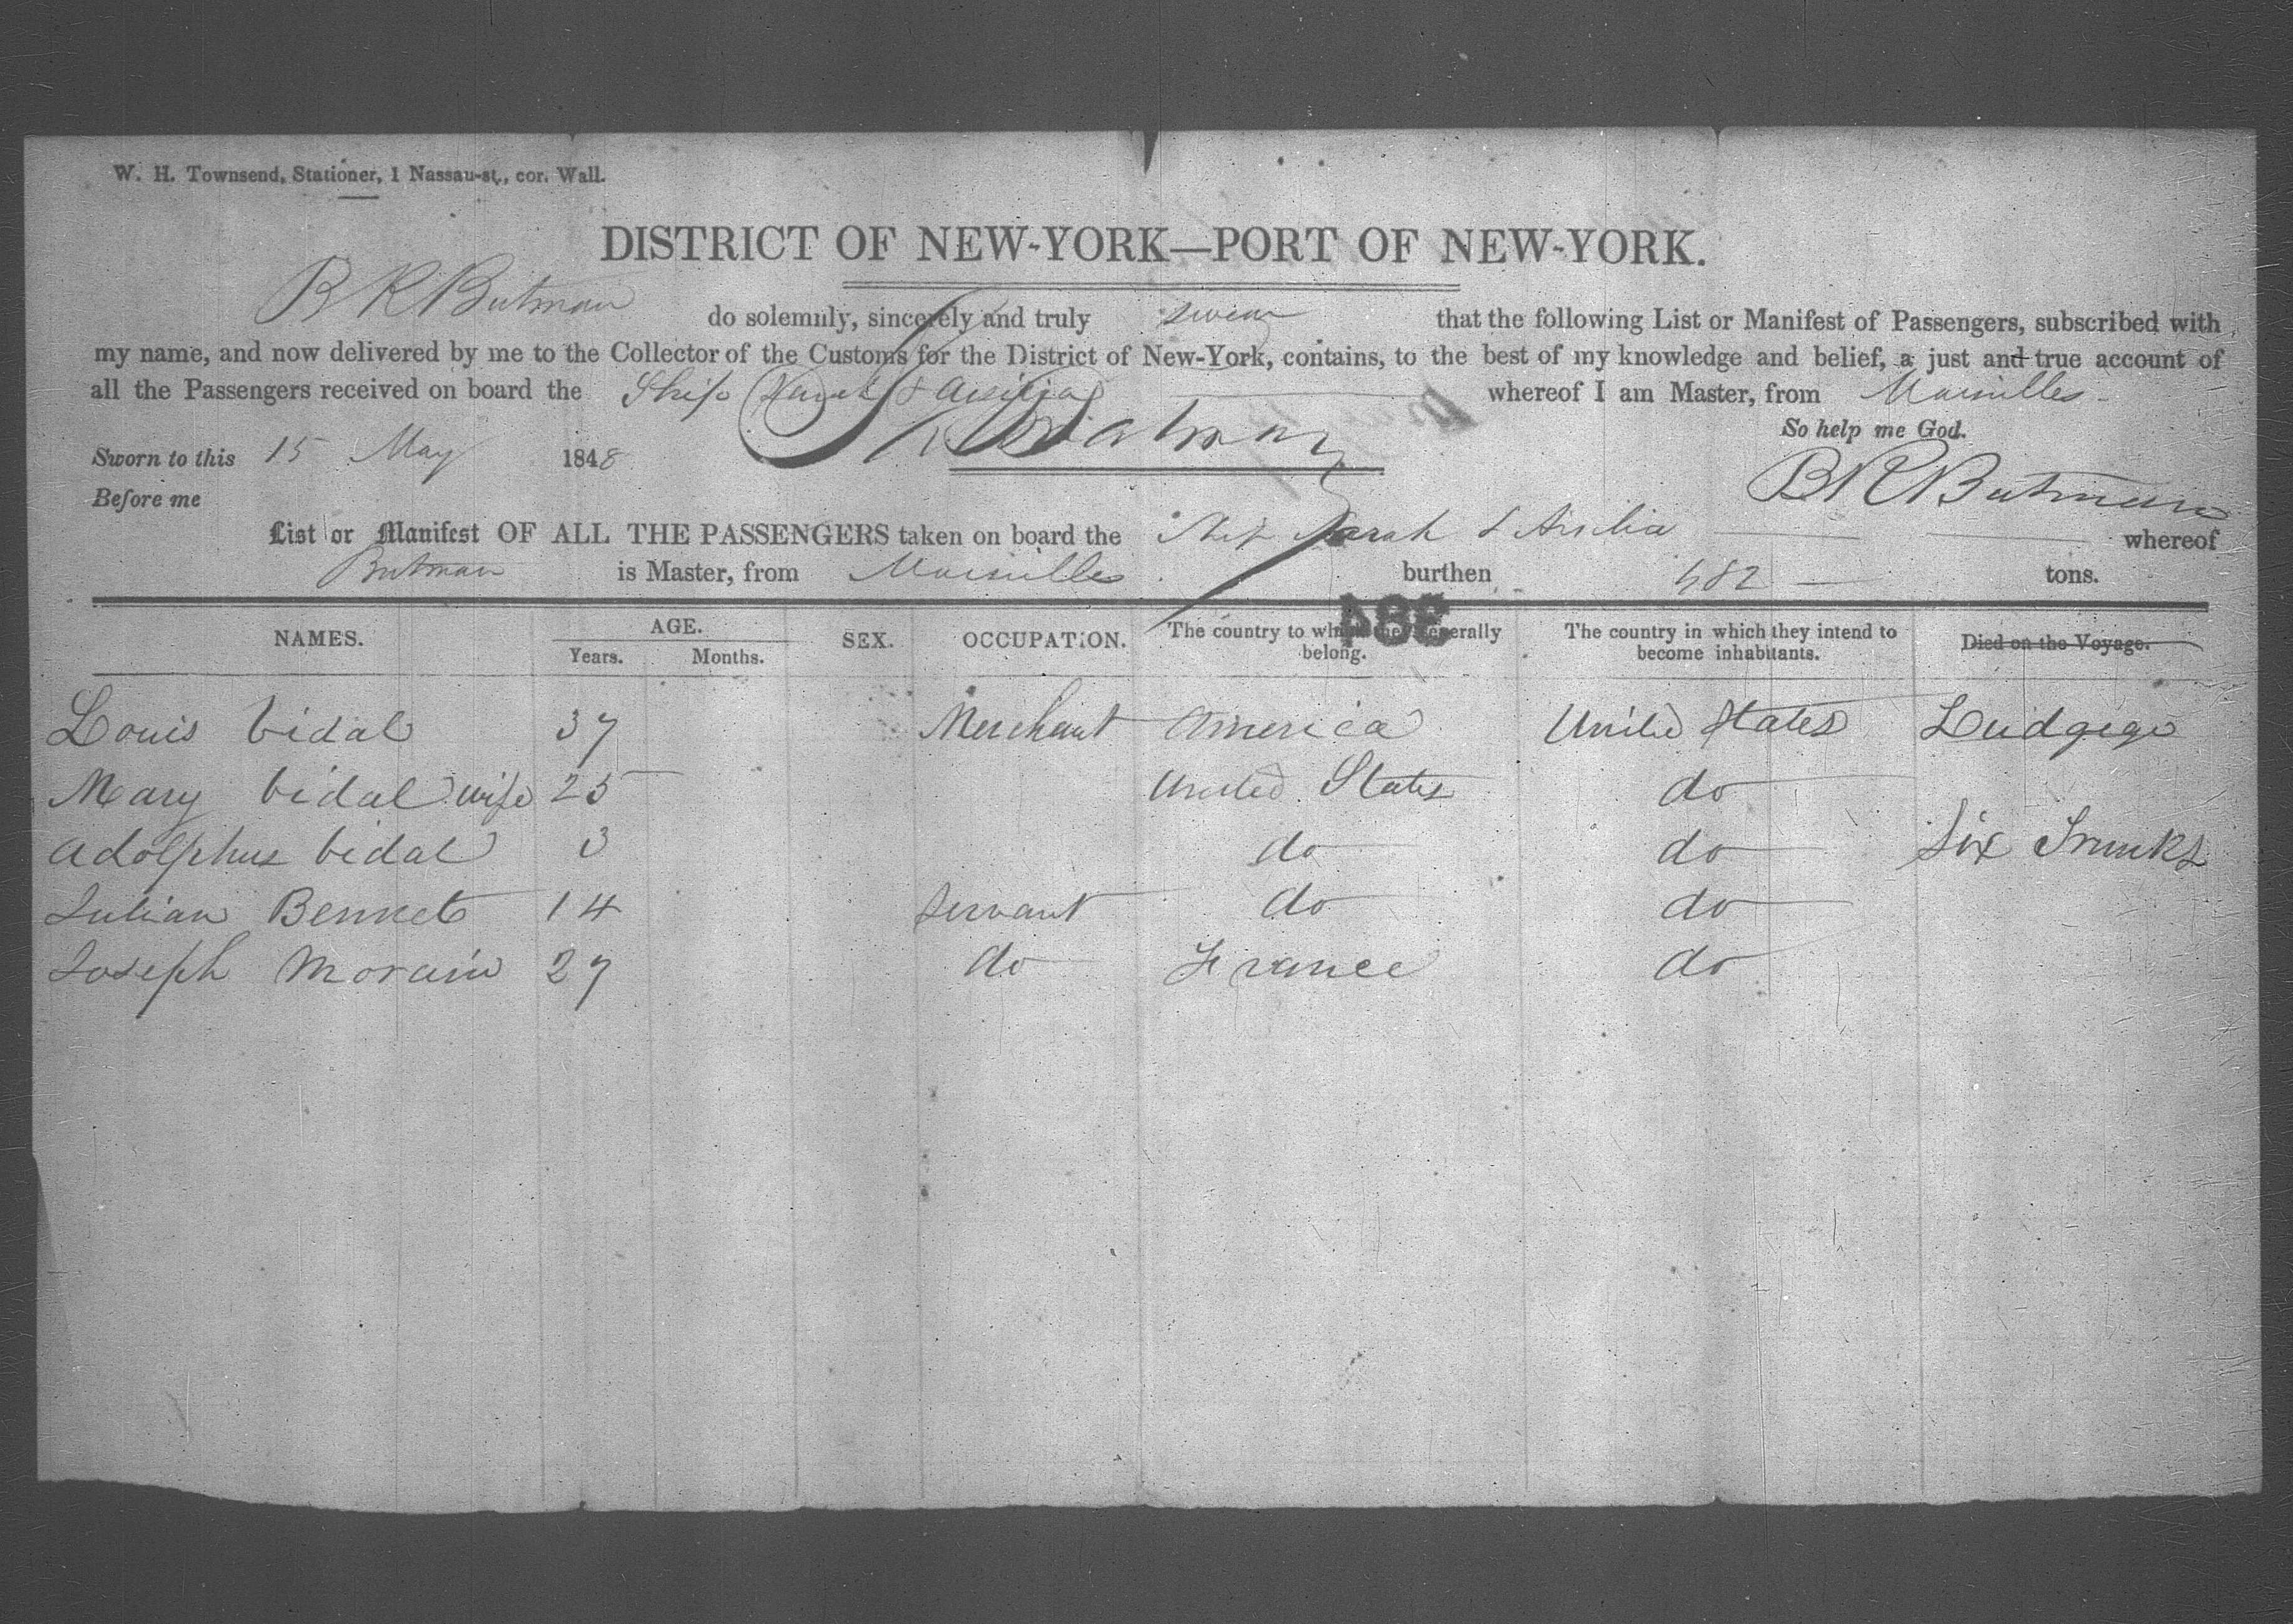 W. H. Townsend, Stationer, 1 Nassau-st., cor. Wall.
DISTRICT OF NEW-YORK—PORT OF NEW-YORK.
B R Butman do solemnly, sincerely and truly swear that the following List or Manifest of Passengers, subscribed with
my name, and now delivered by me to the Collector of the Customs for the District of New-York, contains, to the best of my knowledge and belief, a just and true account of
all the Passengers received on board the Ship Sarah & Arsilia whereof I am Master, from Marseilles
So help me God.
Sworn to this 15 May 1848
B R Butman
Before me
List or Manifest OF ALL THE PASSENGERS taken on board the Ship Sarah & Arsilia whereof
Butman is Master, from Marseilles burthen 482 tons.
384
NAMES. AGE. SEX. OCCUPATION. The country to which they generally belong. The country in which they intend to become inhabitants. Died on the Voyage.
Years. Months.
Louis Vidal 37 Merchant America United States Ludgege
Mary Vidal wife 25 United States do
Adolphus Vidal 3 do do Six Trunks
Julian Bennet 14 Servant do do
Joseph Morain 27 do France do